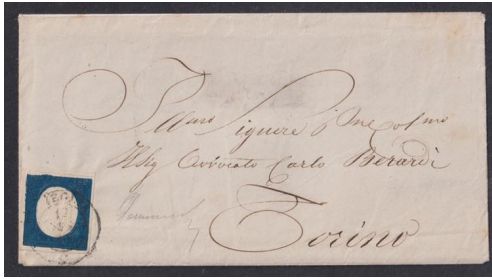 Ill.mo Signore P.ne Col.mo
Il Sig. Avvocato Carlo Berardi
Torino